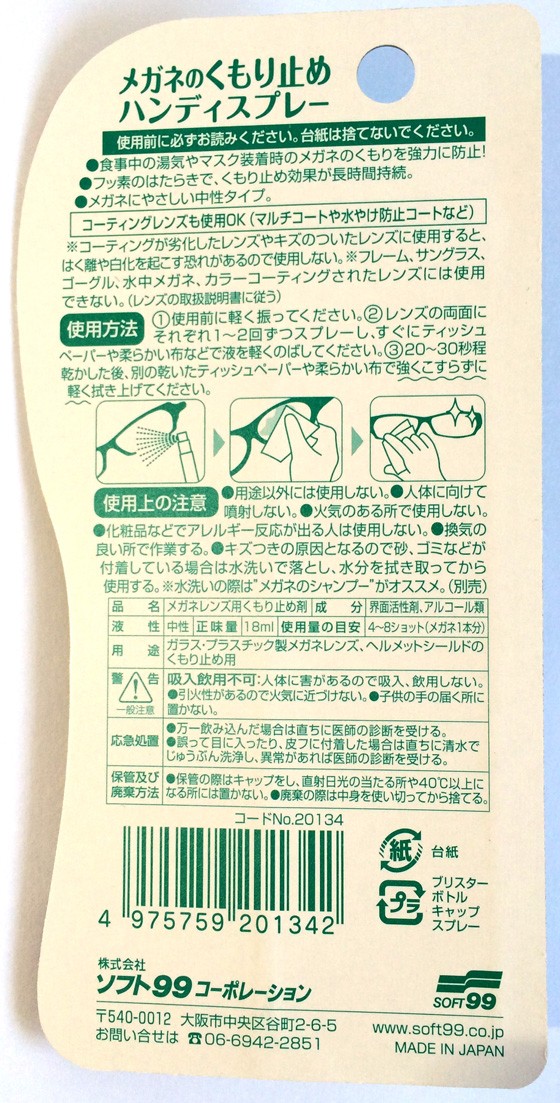 メガネのくもり止め
ハンディスプレー
使用前に必ずお読みください。台紙は捨てないでください。
●食事中の湯気やマスク装着時のメガネのくもりを強力に防止!
●フッ素のはたらきで、くもり止め効果が長時間持続。
●メガネにやさしい中性タイプ。
コーティングレンズも使用OK(マルチコートや水やけ防止コートなど)
※コーティングが劣化したレンズやキズのついたレンズに使用すると、
はく離や白化を起こす恐れがあるので使用しない。※フレーム、サングラス、
ゴーグル、水中メガネ、カラーコーティングされたレンズには使用
できない。(レンズの取扱説明書に従う)
使用方法 ①使用前に軽く振ってください。②レンズの両面に
それぞれ1〜2回ずつスプレーし、すぐにティッシュ
ペーパーや柔らかい布などで液を軽くのばしてください。③20〜30秒程
乾かした後、別の乾いたティッシュペーパーや柔らかい布で強くこすらずに
軽く拭き上げてください。
使用上の注意 ●用途以外には使用しない。●人体に向けて
噴射しない。●火気のある所で使用しない。
●化粧品などでアレルギー反応が出る人は使用しない。●換気の
良い所で作業する。●キズつきの原因となるので砂、ゴミなどが
付着している場合は水洗いで落とし、水分を拭き取ってから
使用する。※水洗いの際は"メガネのシャンプー"がオススメ。(別売)
品名 メガネレンズ用くもり止め剤 成分 界面活性剤、アルコール類
液性 中性 正味量 18ml 使用量の目安 4〜8ショット(メガネ1本分)
用途 ガラス・プラスチック製メガネレンズ、ヘルメットシールドの
くもり止め用
警告 吸入飲用不可:人体に害があるので吸入、飲用しない。
●引火性があるので火気に近づけない。●子供の手の届く所に
一般注意 置かない。
応急処置 ●万一飲み込んだ場合は直ちに医師の診断を受ける。
●誤って目に入ったり、皮フに付着した場合は直ちに清水で
じゅうぶん洗浄し、異常があれば医師の診断を受ける。
保管及び ●保管の際はキャップをし、直射日光の当たる所や40℃以上に
廃棄方法 なる所には置かない。●廃棄の際は中身を使い切ってから捨てる。
コードNo.20134
4 975759 201342
紙 台紙
プラ ブリスター
ボトル
キャップ
スプレー
株式会社
ソフト99コーポレーション
SOFT99
〒540-0012 大阪市中央区谷町2-6-5
お問い合せは ☎06-6942-2851
www.soft99.co.jp
MADE IN JAPAN